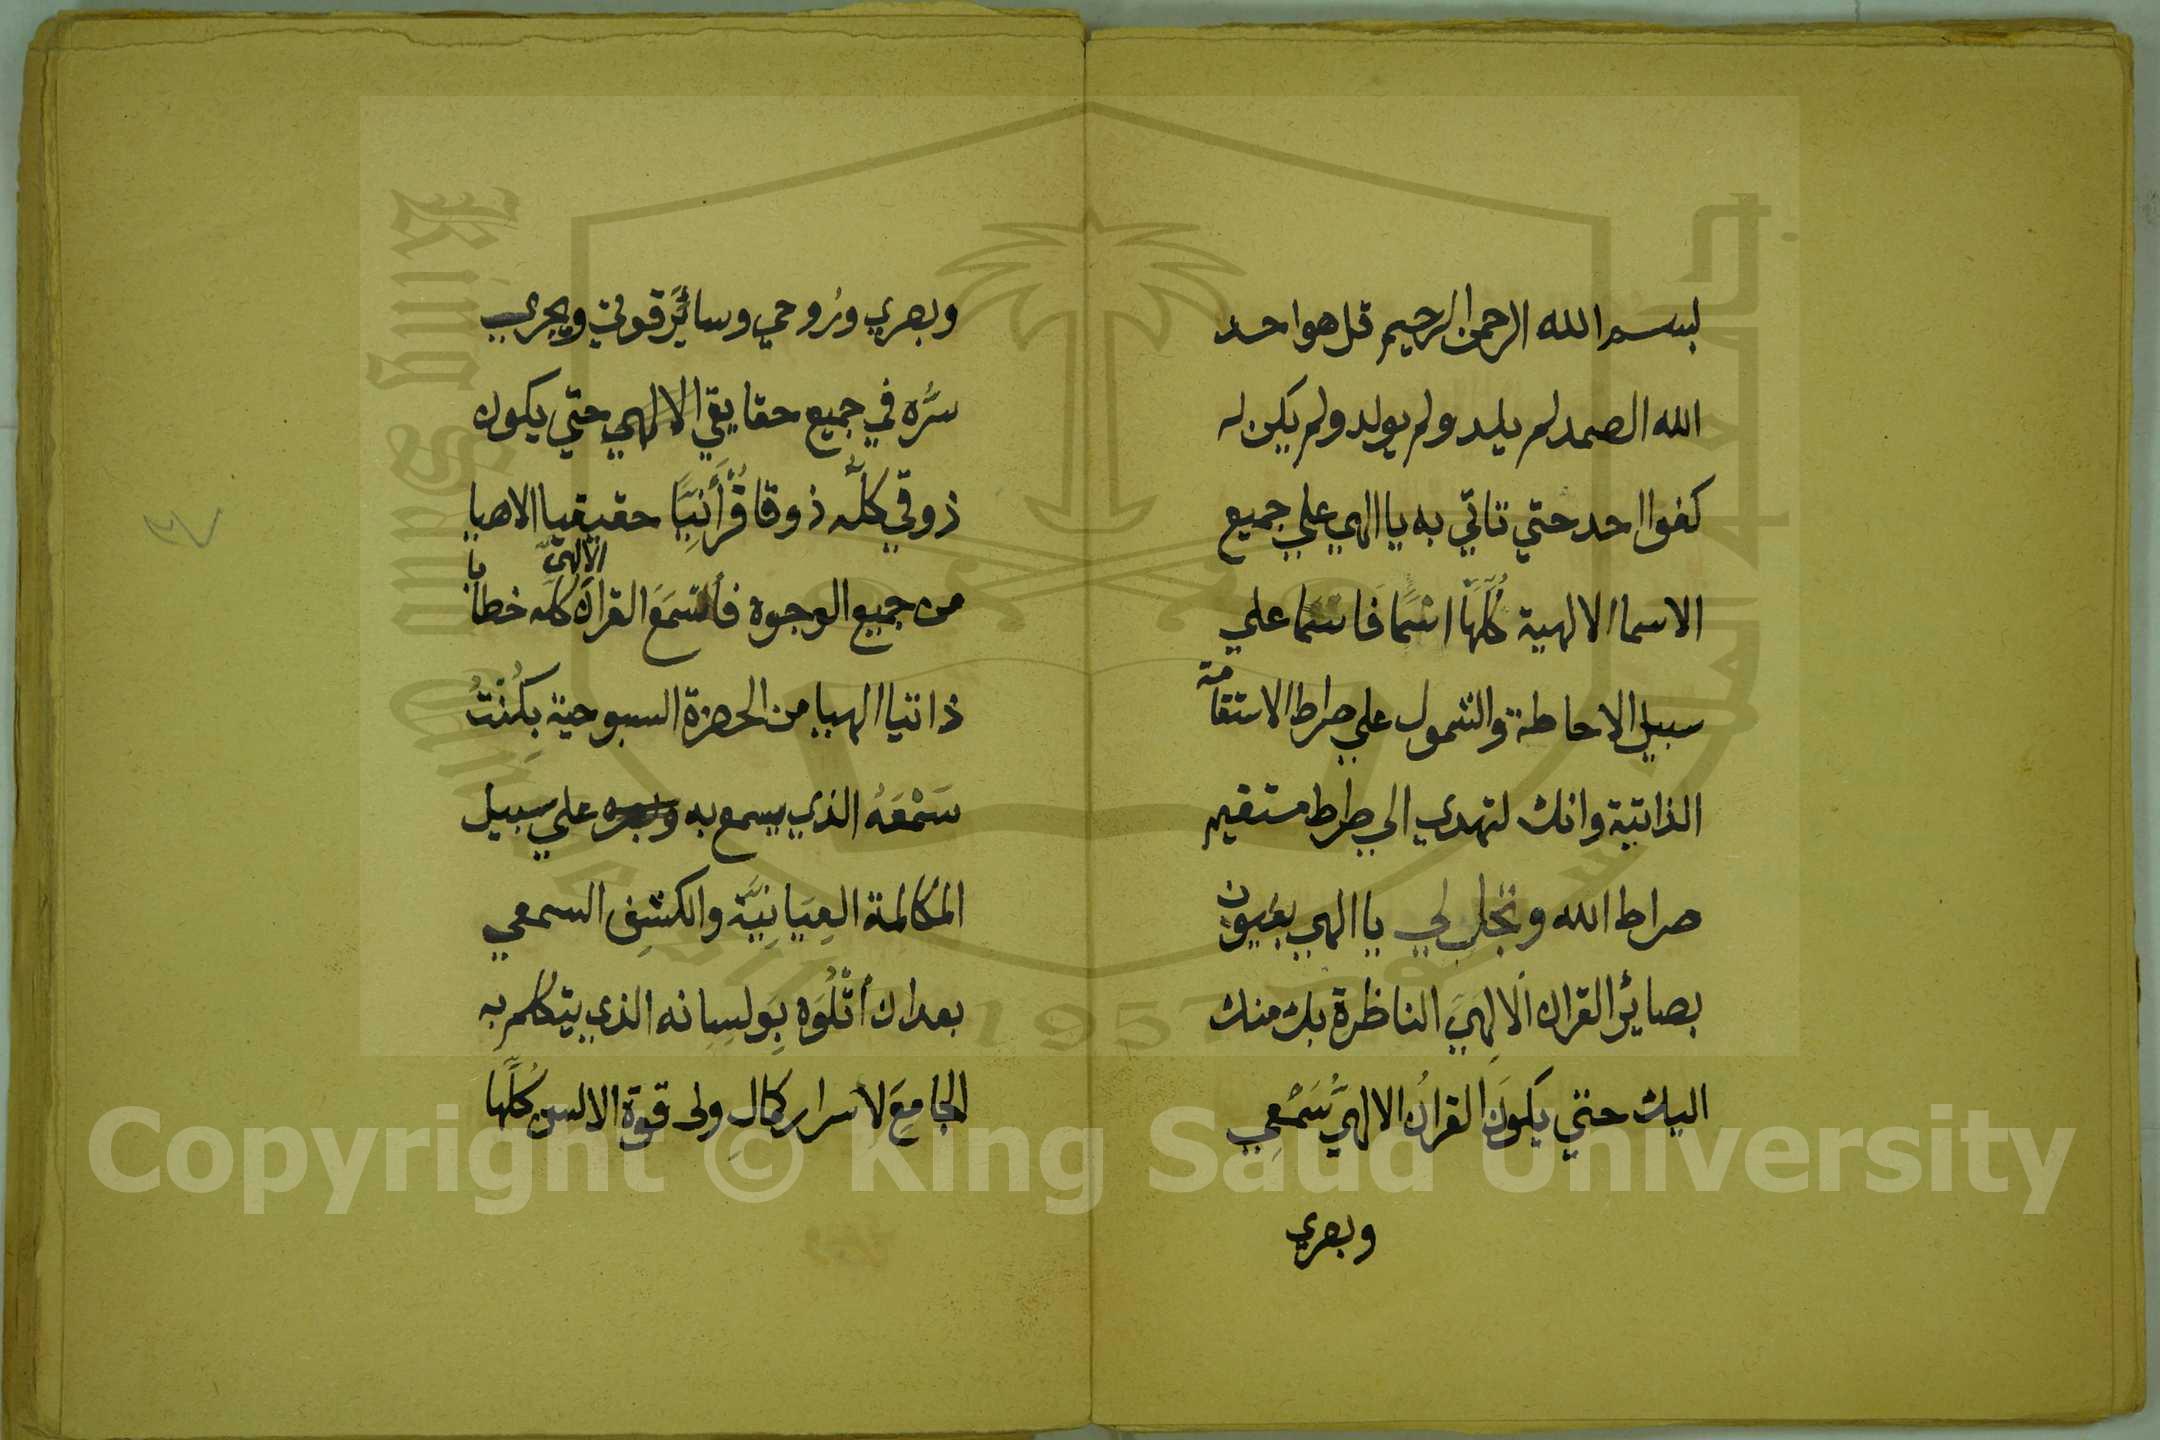 بسم الله الرحمن الرحيم قل هو احد
الله الصمد لم يلد ولم يولد ولم يكن له
كفوا احد حتي تاتي به يا الهي علي جميع
الاسما الالهية كُلِّهَا اسْمًا فَاسْمًا علي
سبيل الاحاطة والشمول علي صراط الاستقامة
الذاتية وانك لتهدي الي صراط مستقيم
صراط الله وتجلي لي يا الهي بعيون
بصائر القران الالهي الناظرة بك منك
اليك حتي يكون القرانُ الالهيُّ سَمْعِي
وبصري
وبصري ورُوحي وسائر قوتي ويجري
سرُّه في جميع حقايقي الالهي حتي يكون
ذوقي كلُّه ذوقا قُرْأَنِيًّا حقيقيا الاهيا
من جميع الوجوه فأسْمَعَ القران الالهيَّ كله خطابا
ذاتيا الهيا من الحضرة السبوحية بِكُنْتُ
سَمْعَهُ الذي يسمع به علي سبيل
المكالمة العِيَانِيَّة والكشفِ السمعي
بعد ان أتْلُوَه بِوَلسِانه الذي يتكلم به
الجامعَ لاسرار كمالِ ولى قوة الالسن كُلِّها
King Saud University
1957
Copyright © King Saud University